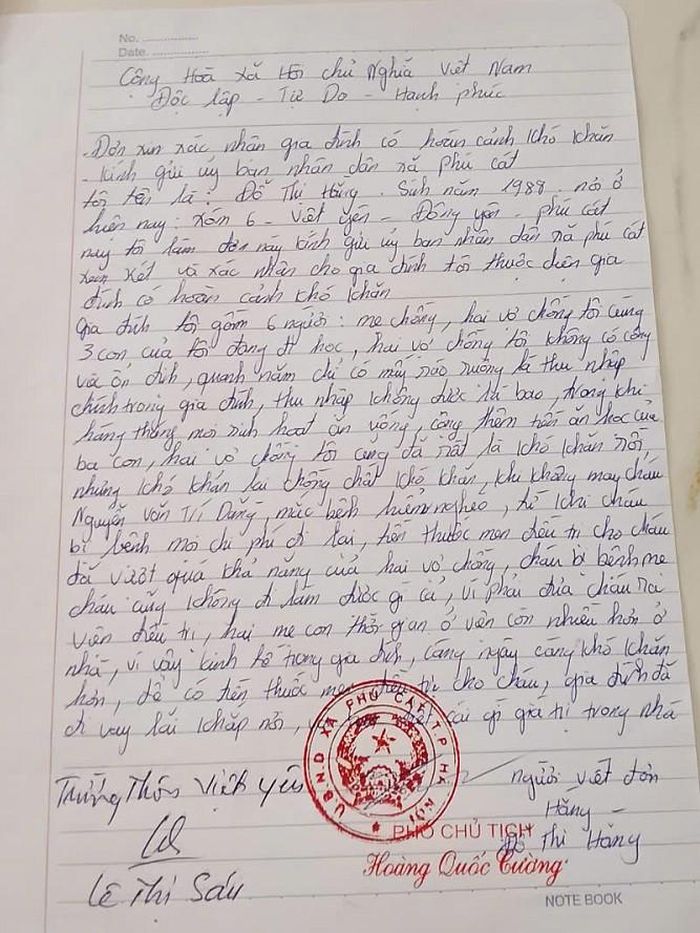 No. ................
Date. ................
Cộng Hoà xã Hội chủ Nghĩa Việt Nam
Độc lập - Tự Do - Hạnh phúc
- Đơn xin xác nhận gia đình có hoàn cảnh khó khăn
- kính gửi ủy ban nhân dân xã phú cát
tôi tên là : Đỗ Thị Hằng. Sinh năm 1988. nơi ở
hiện nay : xóm 6 - việt yên - Đông yên - phú cát
nay tôi làm đơn này kính gửi ủy ban nhân dân xã phú cát
xem xét và xác nhận cho gia đình tôi thuộc diện gia
đình có hoàn cảnh khó khăn
Gia đình tôi gồm 6 người : mẹ chồng, hai vợ chồng tôi cùng
3 con của tôi đang đi học, hai vợ chồng tôi không có công
việc ổn định, quanh năm chỉ có mấy sào ruộng là thu nhập
chính trong gia đình, thu nhập không được là bao, trong khi
hàng tháng mọi sinh hoạt ăn uống, cộng thêm tiền ăn học của
ba con, hai vợ chồng tôi cũng đã rất là khó khăn rồi,
nhưng khó khăn lại chồng chất khó khăn, khi không may cháu
Nguyễn Văn Trí Dũng, mắc bệnh hiểm nghèo, từ khi cháu
bị bệnh mọi chi phí đi lại, tiền thuốc men điều trị cho cháu
đã vượt quá khả năng của hai vợ chồng, cháu bị bệnh mẹ
cháu cũng không đi làm được gì cả, vì phải đưa cháu ra
viện điều trị, hai mẹ con thời gian ở viện còn nhiều hơn ở
nhà, vì vậy kinh tế trong gia đình, càng ngày càng khó khăn
hơn, để có tiền thuốc men điều trị cho cháu, gia đình đã
đi vay lãi khắp nơi, hết cái gì giá trị trong nhà
Trưởng Thôn Việt Yên
người viết đơn
Hằng
Đỗ Thị Hằng
U.B.N.D XÃ PHÚ CÁT T.P HÀ NỘI
PHÓ CHỦ TỊCH
Hoàng Quốc Cương
Lê Thị Sáu
NOTE BOOK